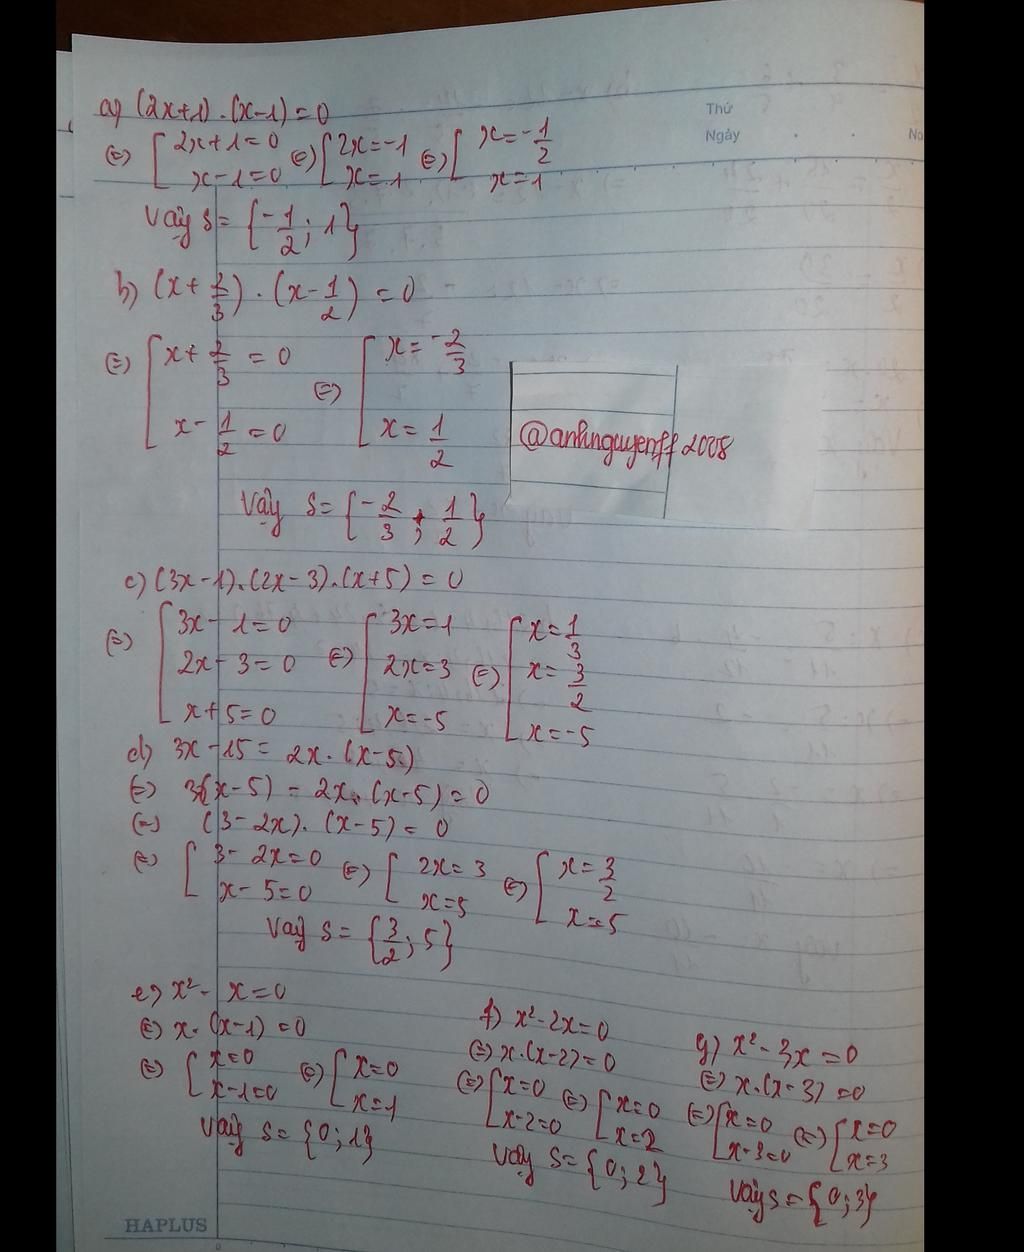 Thứ
Ngày
No
a) (2x+1).(x-1)=0
(=) [ 2x+1=0 (=) [ 2x=-1 (=) [ x=-1/2
x-1=0 x=1 x=1
Vậy S={-1/2; 1}
b) (x+2/3).(x-1/2)=0
(=) [ x+2/3=0 (=) [ x=-2/3
x-1/2=0 x=1/2
@anhnguyenff2008
Vậy S={-2/3; 1/2}
c) (3x-1).(2x-3).(x+5)=0
(=) [ 3x-1=0 (=) [ 3x=1 (=) [ x=1/3
2x-3=0 2x=3 x=3/2
x+5=0 x=-5 x=-5
d) 3x-15=2x.(x-5)
(=) 3(x-5)-2x.(x-5)=0
(=) (3-2x).(x-5)=0
(=) [ 3-2x=0 (=) [ 2x=3 (=) [ x=3/2
x-5=0 x=5 x=5
Vậy S={3/2; 5}
e) x²-x=0
(=) x.(x-1)=0
(=) [ x=0 (=) [ x=0
x-1=0 x=1
Vậy S={0; 1}
f) x²-2x=0
(=) x.(x-2)=0
(=) [ x=0 (=) [ x=0
x-2=0 x=2
Vậy S={0; 2}
g) x²-3x=0
(=) x.(x-3)=0
(=) [ x=0 (=) [ x=0
x-3=0 x=3
Vậy S={0; 3}
HAPLUS